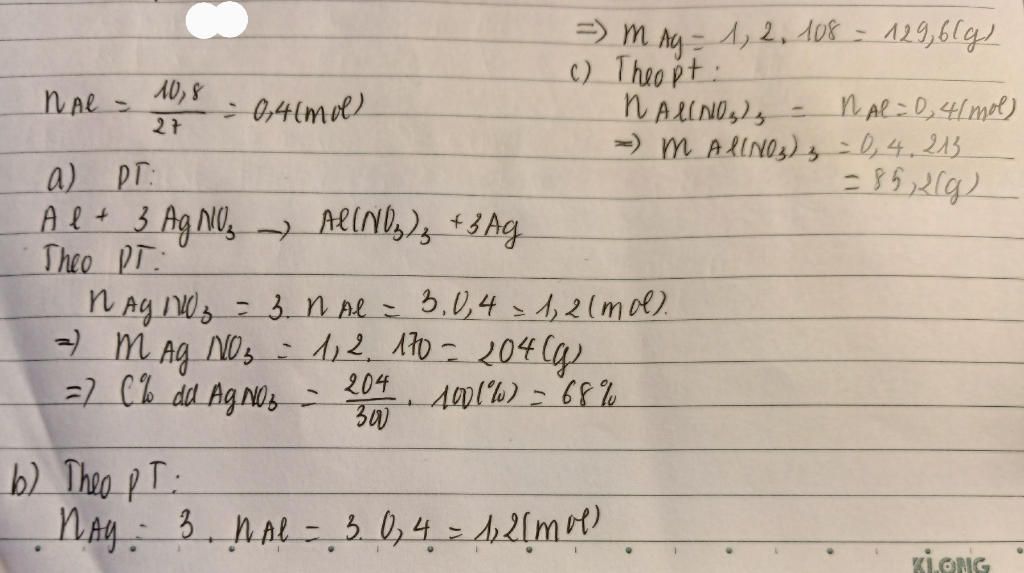 nAl = 10,8/27 = 0,4(mol)
a) PT:
Al + 3AgNO₃ → Al(NO₃)₃ + 3Ag
Theo PT:
nAgNO₃ = 3. nAl = 3.0,4 = 1,2(mol).
=> mAgNO₃ = 1,2. 170 = 204(g)
=> C% dd AgNO₃ = 204/300 . 100(%) = 68%
b) Theo pT:
nAg = 3. nAl = 3.0,4 = 1,2(mol)
=> mAg = 1,2. 108 = 129,6(g)
c) Theo pt:
nAl(NO₃)₃ = nAl = 0,4(mol)
=> mAl(NO₃)₃ = 0,4. 213
= 85,2(g)
KLONG